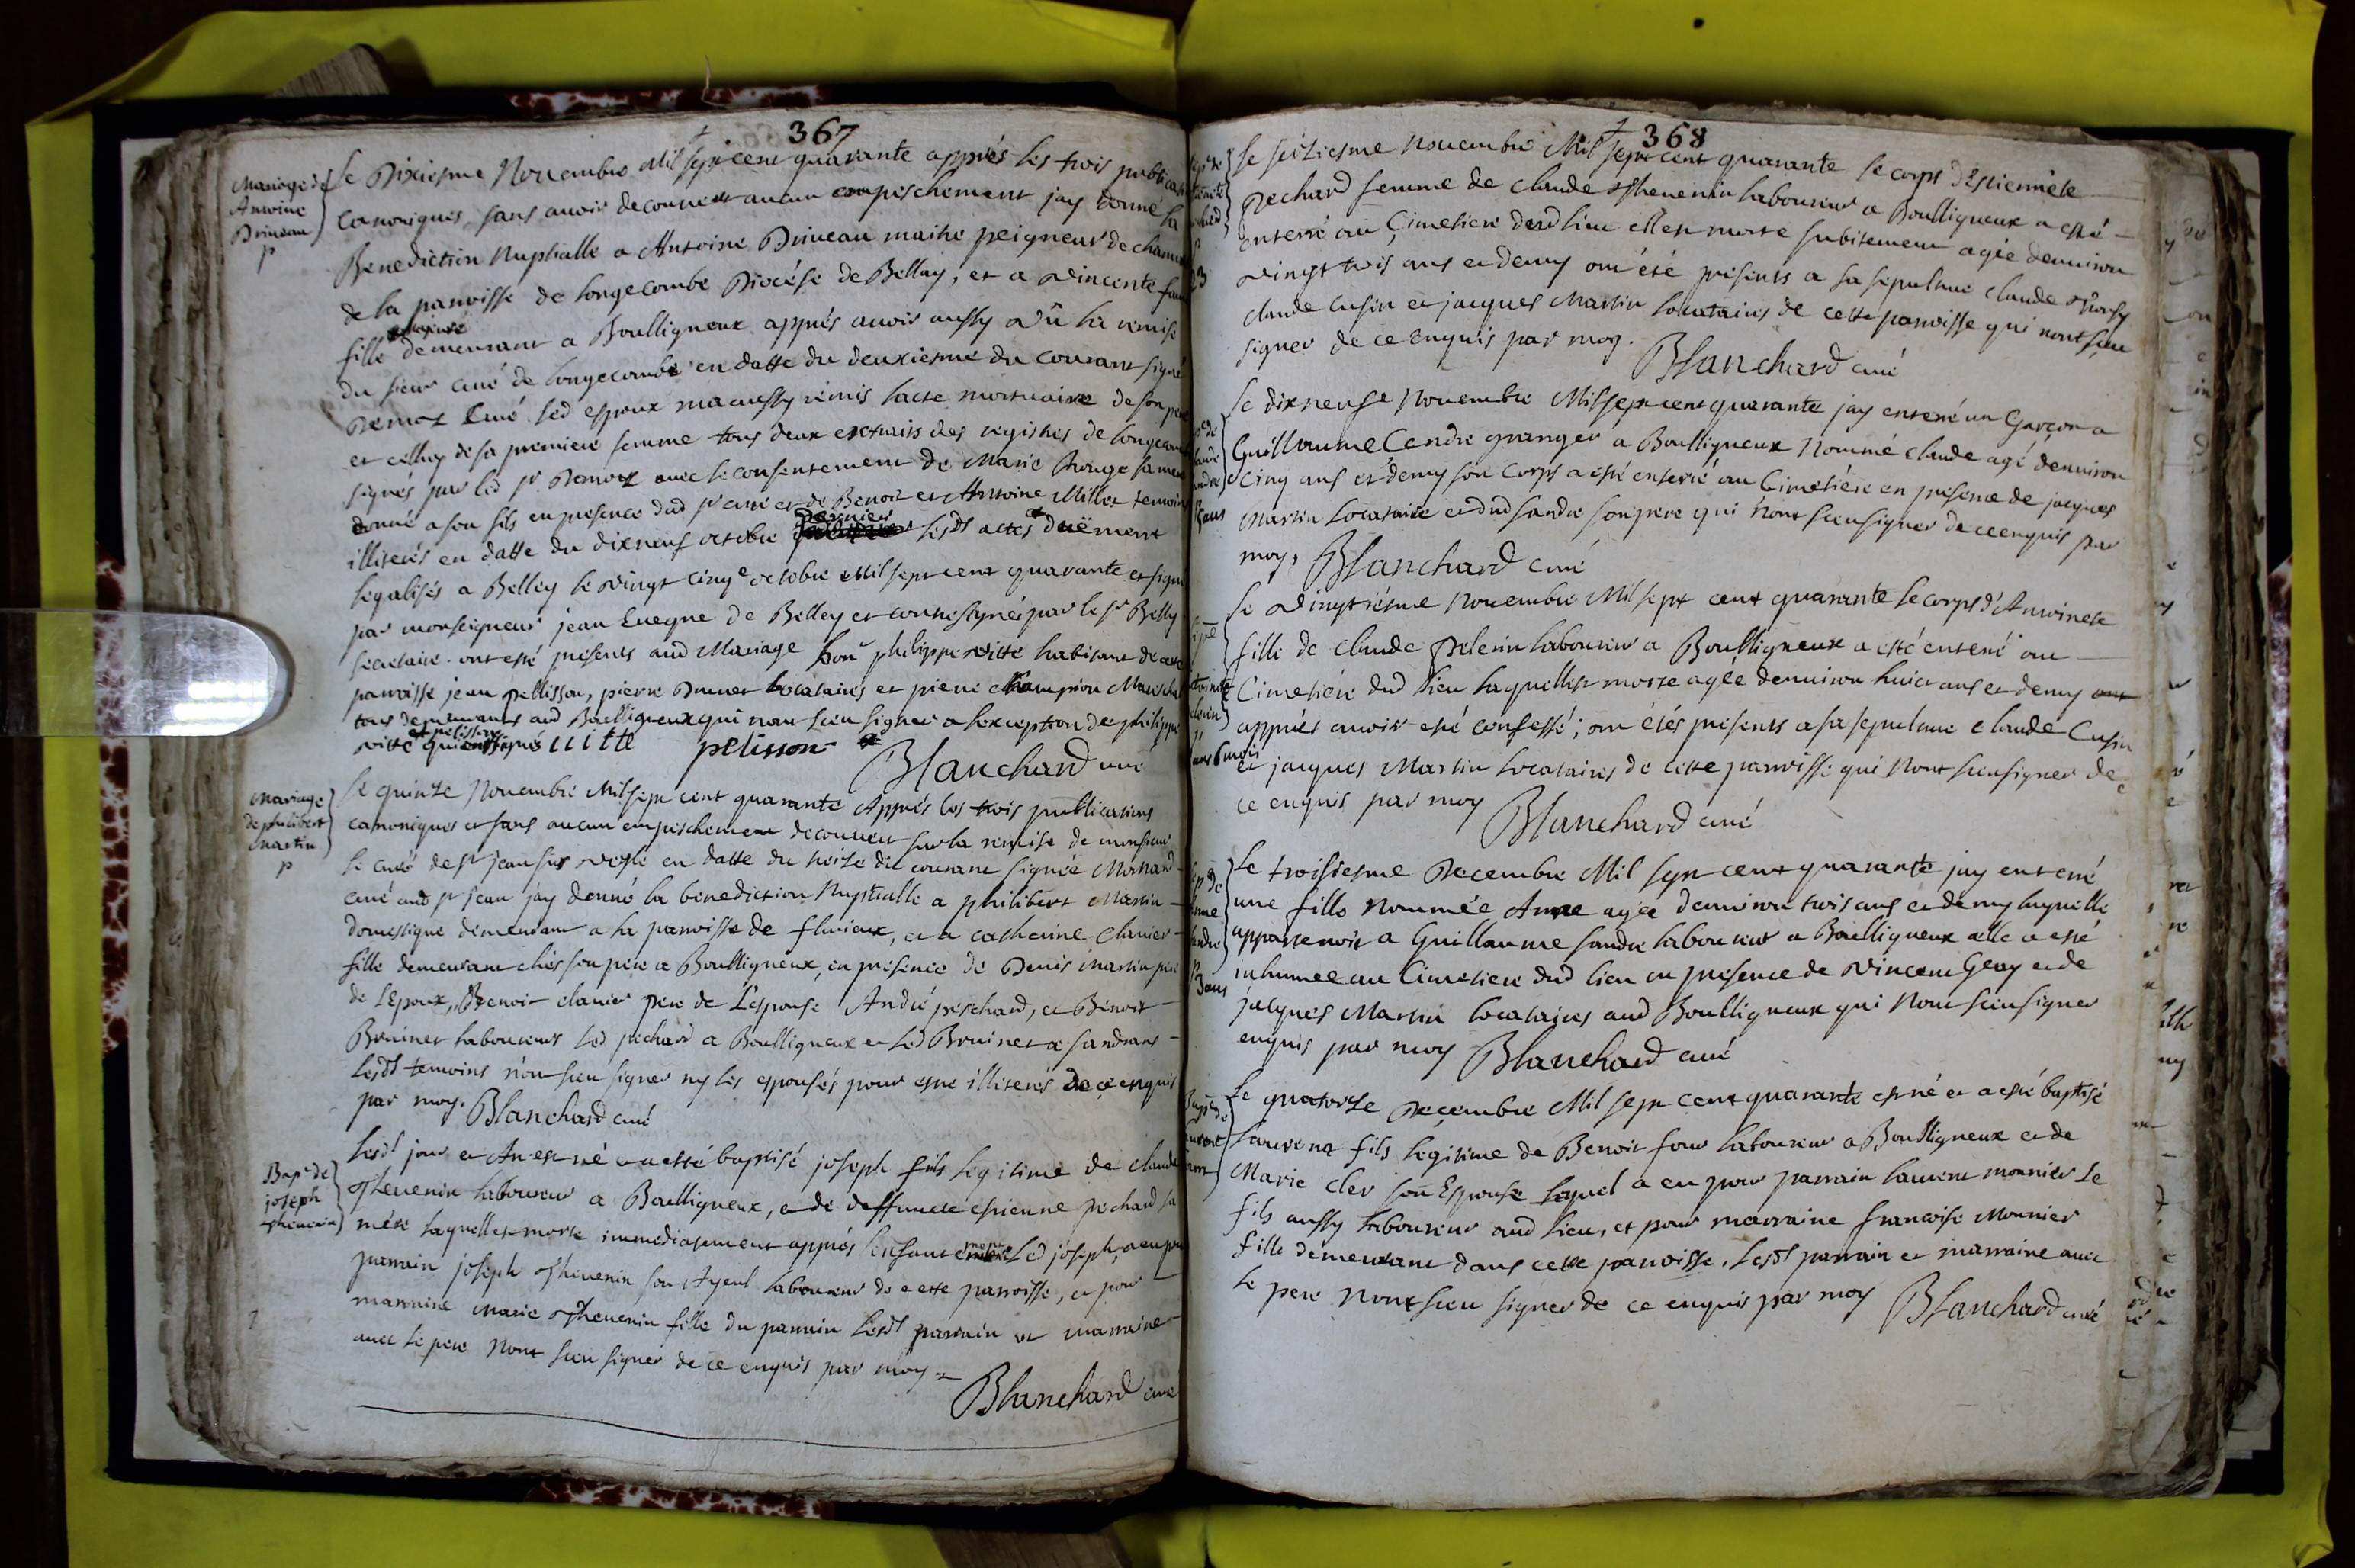 367
Mariage de
Antoine
Drineau
p
Le Dixiesme Novembre Mil sept cent quarante apprés les trois publicat
canoniques, sans avoir decouvert aucun empeschement jay donné la
Benediction Nuptialle a Antoine Drineau maitre peigneur de chanv
de la parroisse de longecombe Diocése de Bellay, et a Vincente
fille demeurant a Boulligneux apprés avoir aussy vû la remise
du sieur curé de longecombe en datte du deuxiesme du courant signé
Curé led espoux ma aussy remis lacte mortuaire de son pere
et celluy de sa premiere femme tous deux extraits des registres de longecom
signés par led sr avec le consentement de Marie sa mere
donné a son fils en presence dud sr curé et de Benoit et Antoine Millet temoins
illiterés en datte du dixneuf octobre dernier lesdt actes duëment
legalisés a Belley le vingt cinqe octobre Mil sept cent quarante et signé
par monseigneur jean Eveque de Belley et contresigné par le sr Belly
secretaire. ont esté présents aud Mariage hond philippe vitte habitant de cette
parroisse jean Pellisson, pierre locataires et pierre Champion Mareschal
tous demeurants aud Boulligneux qui nont sceu signer a lexception de philippe
vitte et pelisson qui ont signés uitte pelisson
Blanchard curé
Mariage
de philibert
Martin
p
Le quinze Novembre Mil sept cent quarante Apprés les trois publications
canoniques et sans aucun empeschement decouvert sur la remise de monsieur
le curé de st jean sur veyle en datte du treize du courant signée
curé aud st jean jay donné la benediction Nuptialle a philibert Martin
domestique demeurant a la parroisse de fluirieux, et a catherine Clavier
fille demeurant chés son pere a Boulligneux, en presence de Denis Martin pere
de L'Epoux, Benoit clavier pere de L'espouse André peschard, et Benoit
Bruinet laboureurs led pechard a Boulligneux et led Bruinet a sandrans
lesdt temoins n'on sceu signer ny les espousés pour estre illiterés de ce enquis
par moy. Blanchard curé
Bape de
joseph
thevenin
Lesdt jour et An est né et a esté baptisé joseph fils legitime de claude
Thevenin laboureur a Boulligneux, et de deffuncte estienne pechard sa
mére laquelle est morte immediatement apprés lenfantement Led joseph a eu pr
parrain joseph Thevenin son Ayeul laboureur de cette parroisse, et pour
marraine Marie Thevenin fille du parrain Lesdt parrain et marraine
avec le pere Nont sceu signer de ce enquis par moy
Blanchard curé
368
Le seiziesme Novembre Mil sept cent quarante le corps d'Estienniete
Pechard femme de claude Thevenin laboureur a Boulligneux a esté
enterré au Cimetiere dud lieu elle est morte subitement agée denviron
vingt trois ans et demy ont été présents a sa sepulture Claude
claude Cusin et jacques Martin locataires de cette parroisse qui nont sceu
signer de ce enquis par moy.
Blanchard curé
Le dixneufe Novembre Mil sept cent quarante jay enterré un Garçon a
Guillaume Candre granger a Boulligneux Nommé claude agé denviron
Cinq ans et demy son corps a esté enterré au Cimetiére en présence de jacques
Martin Locataire et dud sandre son pere qui n'ont sceu signer de ce enquis par
moy, Blanchard curé
Le Vingtiésme Novembre Mil sept cent quarante le corps d'Antoinete
fille de claude Pelerin laboureur a Boulligneux a esté enterré au
Cimetiére dud lieu laquelle est morte agée denviron huict ans et demy
apprés avoir esté confessé; ont étés présents a sa sepulture claude Cusin
et jacques Martin locataires de cette parroisse qui Nont sceu signer de
ce enquis par moy Blanchard curé
Le troisiesme Decembre Mil sept cent quarante jay enterré
une fille Nommée Anne agée denviron trois ans et demy laquelle
appartenoit a Guillaume sandre laboureur a Boulligneux elle a esté
inhumee au Cimetiere dud lieu en presence de Vincent Geay et de
jacques Martin locataires aud Boulligneux qui Nont sceu signer
enquis par moy Blanchard curé
Le quatorze Decembre Mil sept cent quarante est né et a esté baptisé
Laurent fils legitime de Benoit four laboureur a Boulligneux et de
Marie Cler son Espouse lequel a eu pour parrain laurent monnier le
fils aussy laboureur aud lieu, et pour marraine francoise Monnier
fille demeurant dans cette parroisse. Lesdt parrain et marraine avec
le pere Nont sceu signer de ce enquis par moy Blanchard curé